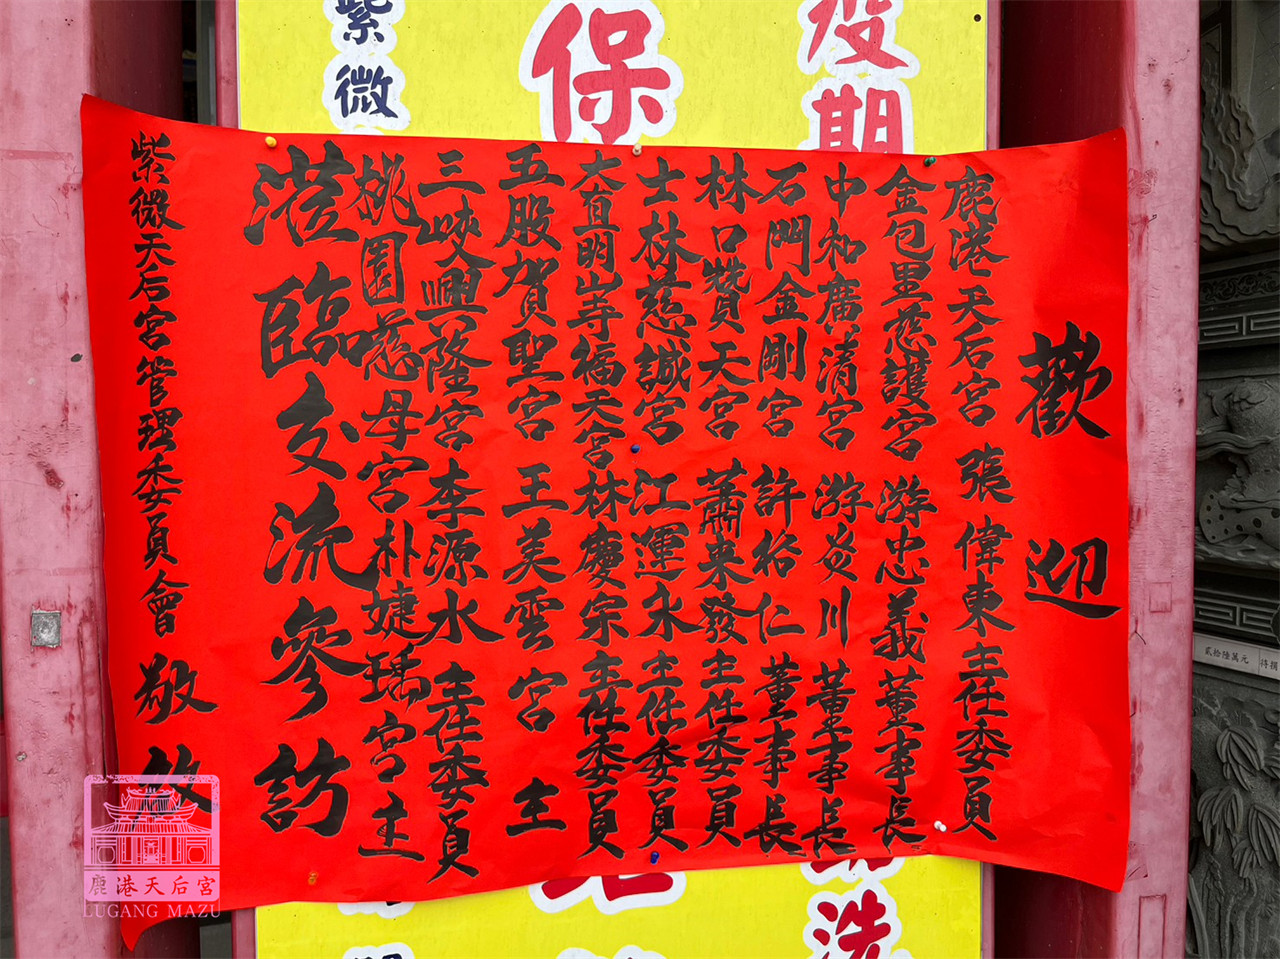 歡迎
鹿港天后宮 張偉東 主任委員
金包里慈護宮 游忠義 董事長
中和廣濟宮 游炎川 董事長
石門金剛宮 許裕仁 董事長
林口贊天宮 蕭来發 主任委員
士林慈諴宮 江運永 主任委員
大直明山寺福天宮 林慶宗 主任委員
五股賀聖宮 王美雲 宮主
三峽興隆宮 李源水 主任委員
桃園慈母宮 朴婕瑀 宮主
蒞臨交流參訪
紫微天后宮管理委員會 敬
疫期
保
紫微
洗
貳拾陸萬元
鹿港天后宮
LUGANG MAZU